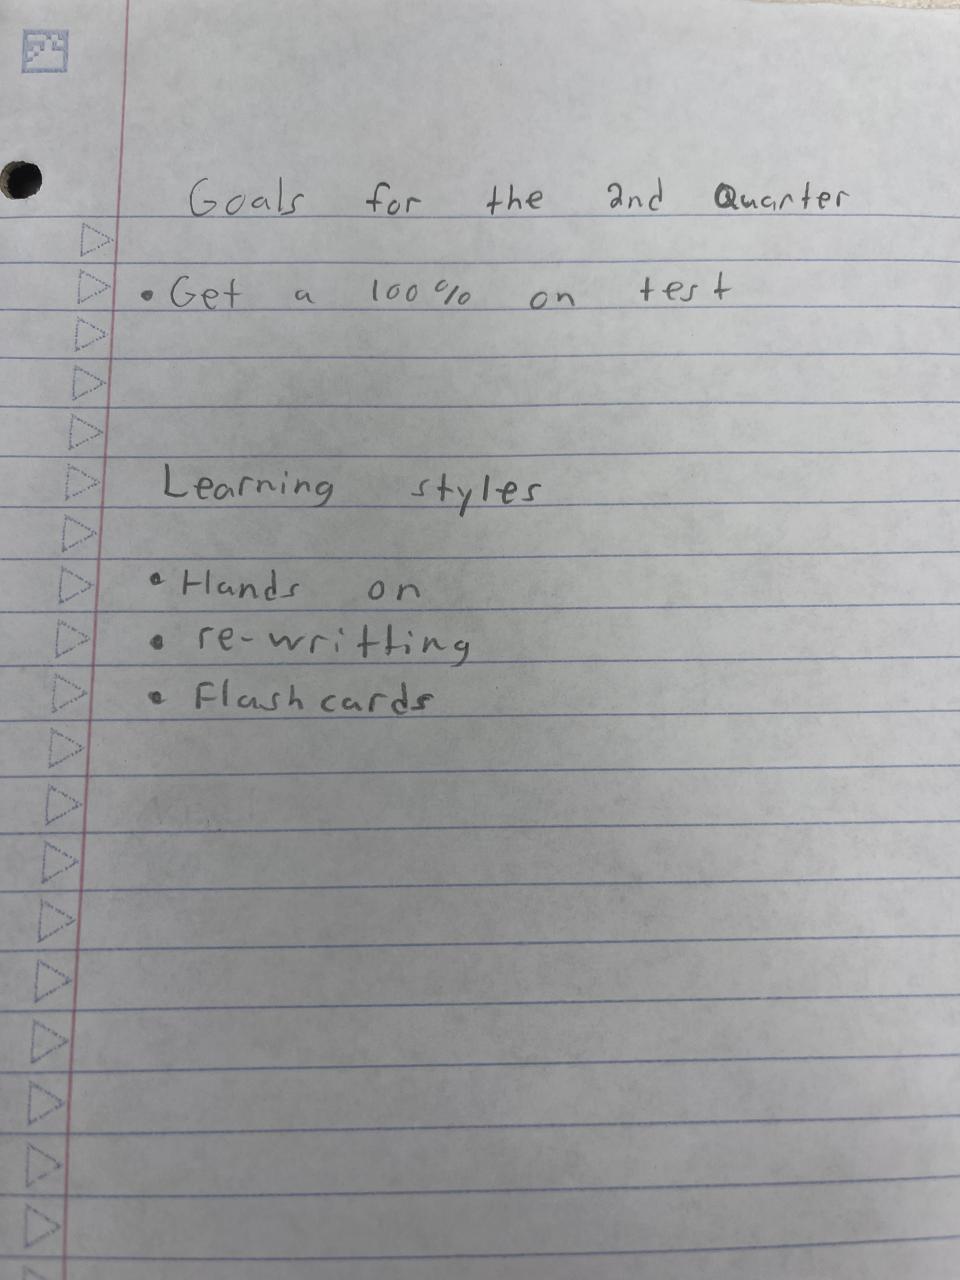 Goals for the 2nd Quarter
• Get a 100% on test
Learning styles
• Hands on
• re-writting
• Flash cards